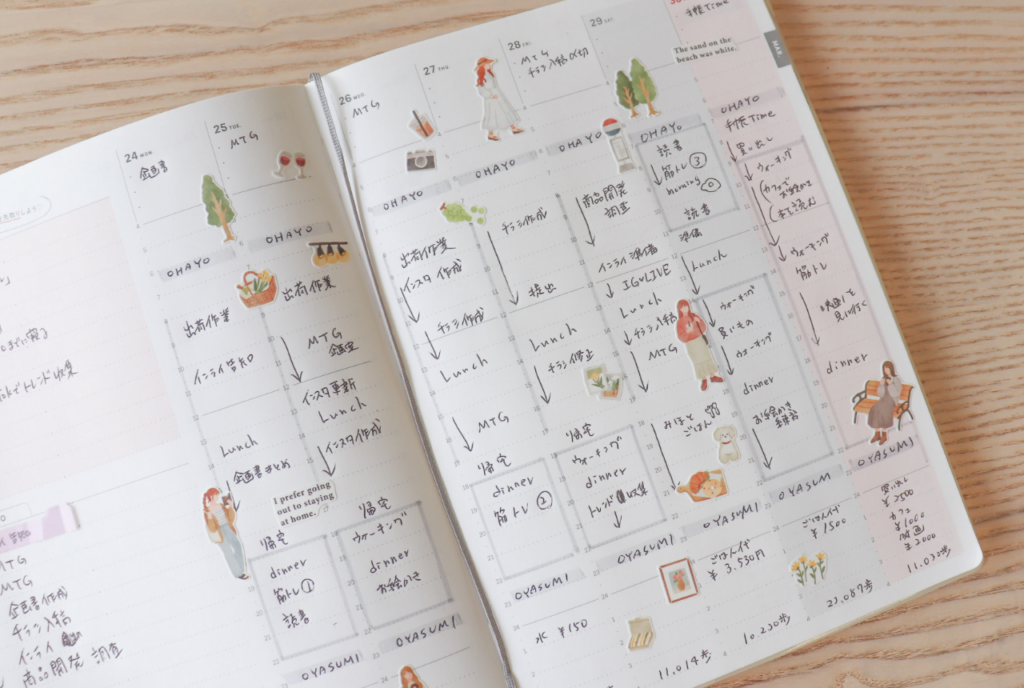 トレンド収集
MTG
MTG
企画書作成
チラシ入稿
インライ
商品開発 調査
24 MON.
企画書
OHAYO
出荷作業
インライ告知
Lunch
企画書まとめ
帰宅
dinner
筋トレ①
読書
OYASUMI
25 TUE.
MTG
OHAYO
出荷作業
MTG
企画
インスタ更新
Lunch
インスタ作成
I prefer going
out to staying
at home.
帰宅
ウォーキング
dinner
お絵かき
OYASUMI
26 WED.
MTG
OHAYO
出荷作業
インスタ作成
チラシ作成
Lunch
MTG
帰宅
dinner
筋トレ②
OYASUMI
水 ¥150
27 THU.
OHAYO
チラシ作成
提出
Lunch
チラシ修正
帰宅
ウォーキング
dinner
トレンド収集
OYASUMI
11,014歩
28 FRI.
MTG
チラシ入稿〆切
OHAYO
商品開発
調査
インライ準備
IGLIVE
Lunch
チラシ入稿
MTG
みほと
ごはん
OYASUMI
ごはん代
¥3,530円
10,230歩
29 SAT.
OHAYO
読書
筋トレ③
読書
準備
Lunch
ウォーキング
買いもの
ウォーキング
dinner
お絵かき
練習
OYASUMI
ごはん代
¥1500
23,087歩
30
手帳Time
The sand on the
beach was white.
OHAYO
手帳Time
買い出し
ウォーキング
カフェで
お絵かき
本も読む
ウォーキング
筋トレ
映画を
見に行く
dinner
OYASUMI
買い出し
¥2500
カフェ
¥1000
映画
¥2000
11,032歩